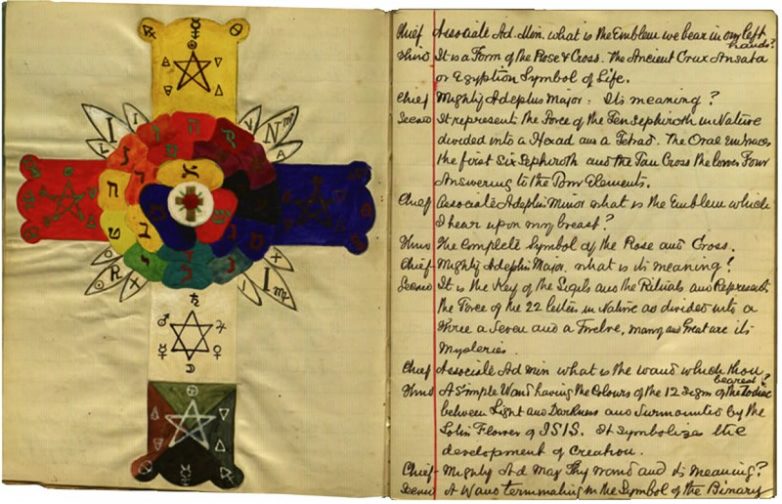 I
N
R
I
Chief Associate Ad. Min. what is the Emblem we bear in our left
hands?
Third It is a Form of the Rose & Cross. The Ancient Crux Ansata
or Egyptian Symbol of Life.
Chief Mighty Adeptus Major. Its meaning?
Second It represents the Force of the Ten Sephiroth in Nature
divided into a Hexad and a Tetrad. The Oval embraces
the first Six Sephiroth and the Tau Cross the lower Four
Answering to the Four Elements.
Chief Associate Adeptus Minor what is the Emblem which
I bear upon my breast?
Third The Complete Symbol of the Rose and Cross.
Chief Mighty Adeptus Major. what is its meaning?
Second It is the Key of the Sigils and the Rituals and Represents
the Force of the 22 letters in Nature as divided into a
Three a Seven and a Twelve, many and Great are its
Mysteries.
Chief Associate Ad Min what is the wand which thou
bearest?
Third A Simple Wand having the Colours of the 12 Signs of the Zodiac
between Light and Darkness and Surmounted by the
Lotus Flower of ISIS. It Symbolizes the
development of Creation.
Chief Mighty Ad Maj Thy wand and its Meaning?
Second A Wand terminating in the Symbol of the Binary